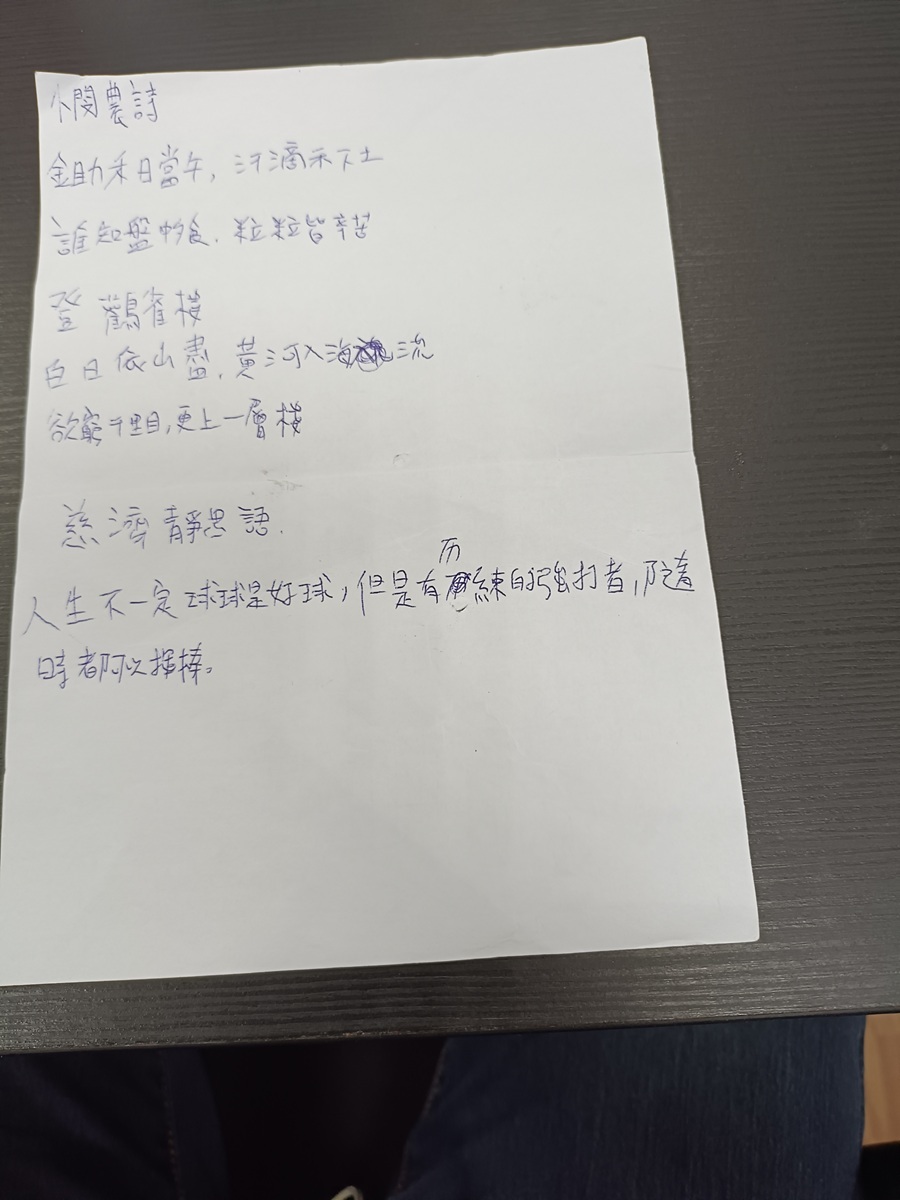 憫農詩
鋤禾日當午,汗滴禾下土
誰知盤中飧,粒粒皆辛苦
登鸛雀樓
白日依山盡,黃河入海流
欲窮千里目,更上一層樓
慈濟靜思語.
人生不一定球球是好球,但是有历練的強打者,隨著
時都可以揮棒。